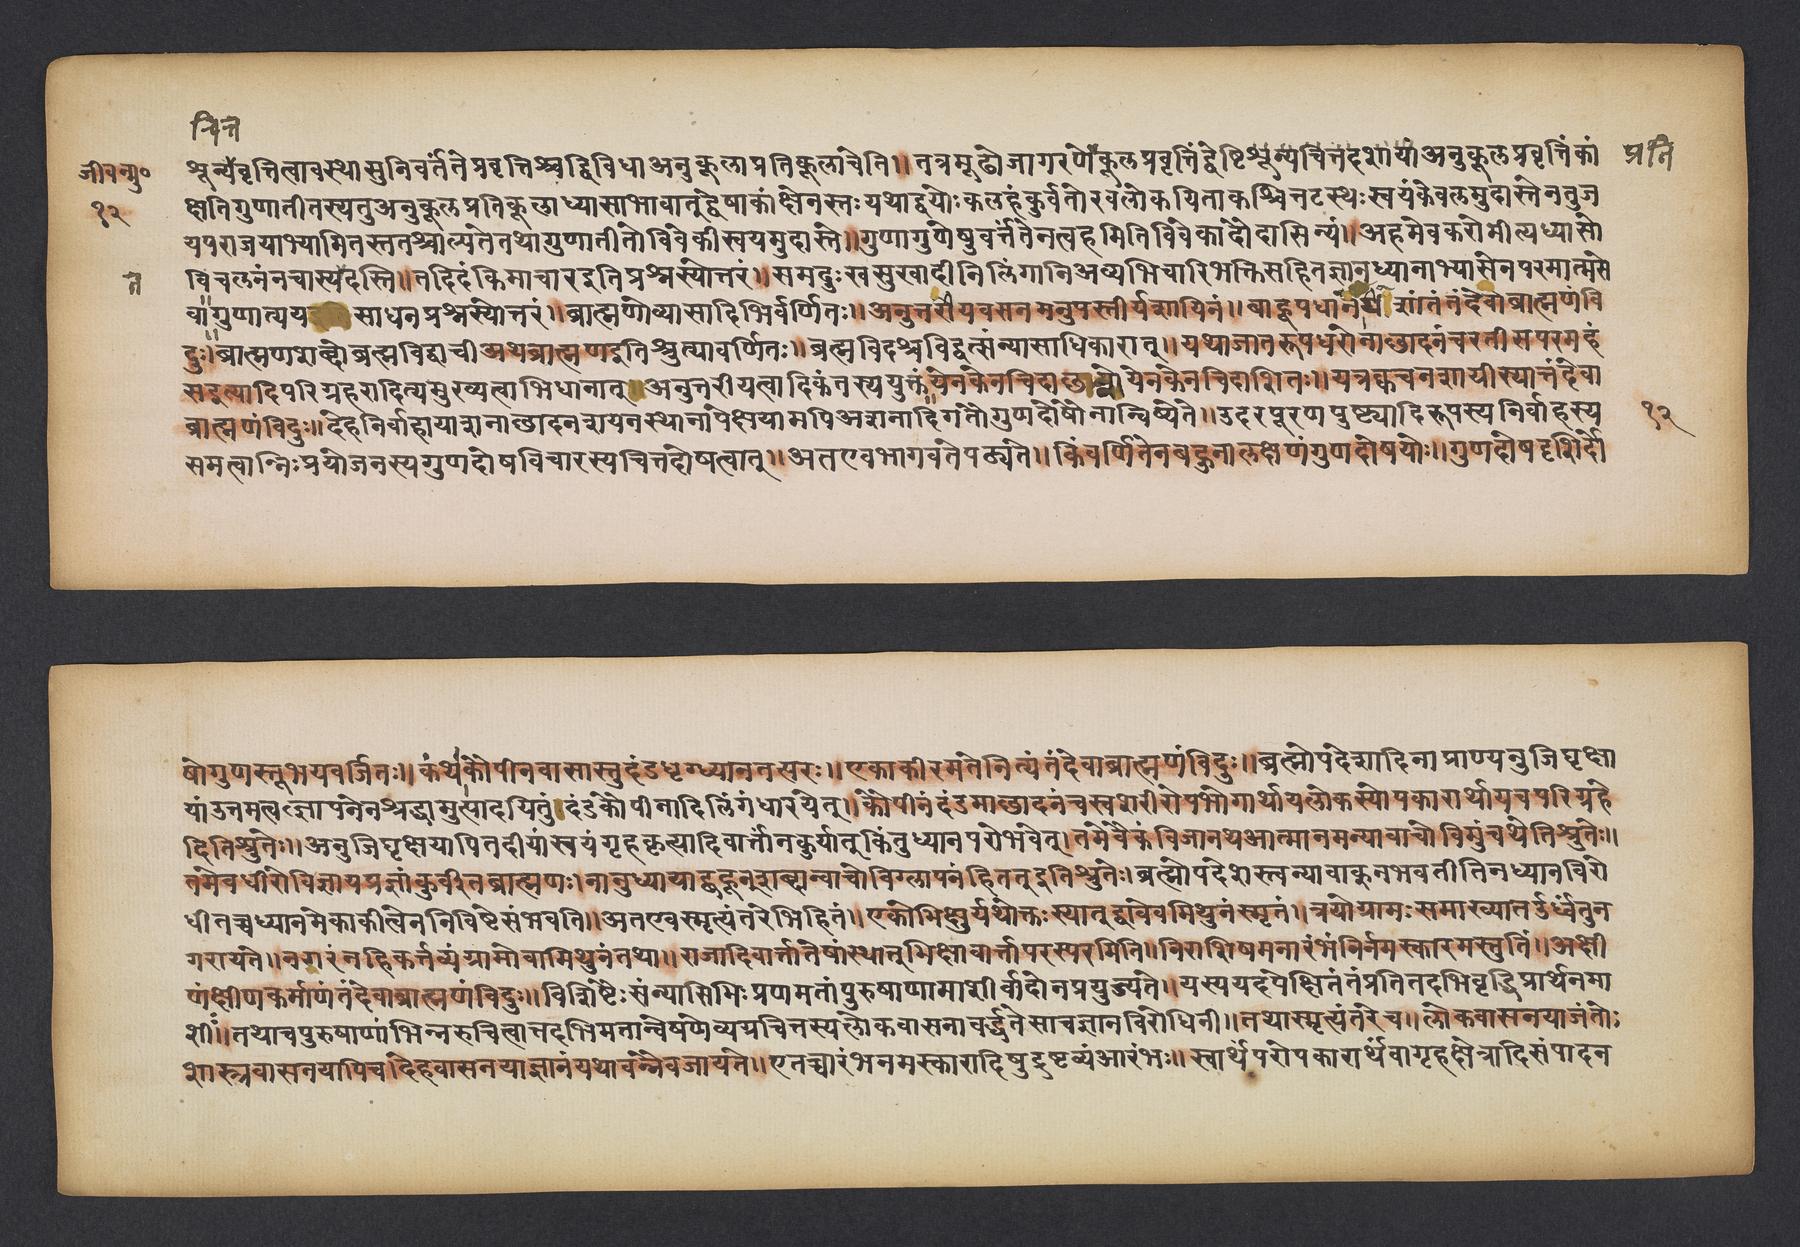 चित्त
जीवन्मु०
१२
शून्यवृत्तित्वावस्थासुनिवर्ततेप्रवृत्तिश्चद्विविधाअनुकूलाप्रतिकूलाचेति॥तत्रमूढोजागरणेकूलप्रवृत्तिंद्वेष्टिशून्यचित्तदशायांअनुकूलप्रवृत्तिंकां
प्रति
क्षतिगुणातीतस्यतुअनुकूलप्रतिकूलाध्यासाभावात्द्वेषाकांक्षेनस्तःयथाद्वयोःकलहंकुर्वतोरवलोकयिताकश्चित्तटस्थःस्वयंकेवलमुदास्तेनतुज
यपराजयाभ्यामितस्ततश्चाल्यतेतथागुणातीतोविवेकीस्वयमुदास्ते॥गुणागुणेषुवर्त्ततेनत्वहमितिविवेकादौदासिन्यं॥अहमेवकरोमीत्यध्यासो
त
विचलनंनचास्यदस्ति॥तदिदंकिमाचारइतिप्रश्नस्योत्तरं॥समदुःखसुखादीनिलिंगानिअव्यभिचारिभक्तिसहितज्ञानध्यानाभ्यासेनपरमात्मसे
वागुणात्यय साधनप्रश्नस्योत्तरं॥ब्राह्मणोव्यासादिभिर्वर्णितः॥अनुत्तरीयवसनमनुपस्तीर्यशायिनं॥बाहूपधानं शांतंतंदेवाब्राह्मणंवि
दुः॥ब्राह्मणशब्दोब्रह्मविद्वाचीअथब्राह्मणइतिश्रुत्यावर्णितः॥ब्रह्मविदश्चविद्वत्संन्यासाधिकारात्॥यथाजातरूपधरोनाछादनंचरतीसपरमहं
सइत्यादिपरिग्रहराहित्यमुख्यत्वाभिधानात्॥अनुत्तरीयत्वादिकंतस्ययुक्तंयेनकेनचिदाछन्नोयेनकेनचिदाशितः॥यत्रक्वचनशायीस्यात्तंदेवा
ब्राह्मणंविदुः॥देहनिर्वाहायाशनाछादनशयनस्थानापेक्षायामपिअशनादिगतौगुणदोषौनान्विष्येते॥उदरपूरणपुष्ट्यादिरूपस्यनिर्वाहस्य
१२
समत्वान्निःप्रयोजनस्यगुणदोषविचारस्यचित्तदोषत्वात्॥अतएवभागवतेपठ्यते॥किंवर्णितेनबहुनालक्षणंगुणदोषयोः॥गुणदोषदृशिर्दो
षोगुणस्तूभयवर्जितः॥कंथाकौपीनवासास्तुदंडधृग्ध्यानतत्परः॥एकाकीरमतेनित्यंतंदेवाब्राह्मणंविदुः॥ब्रह्मोपदेशादिनाप्राण्यनुजिघृक्षा
यांउत्तमत्वज्ञापनेनश्रद्धामुत्पादयितुं।दंडकौपीनादिलिंगंधारयेत्॥कौपीनंदंडमाछादनंचस्वशरीरोपभोगार्थायलोकस्योपकारार्थायचपरिग्रहे
दितिश्रुतेः॥अनुजिघृक्षयापितदीयांस्वयंगृहकृत्यादिवार्त्तांनकुर्यात्किंतुध्यानपरोभवेत्।तमेवैकंविजानथआत्मानमन्यावाचोविमुंचथेतिश्रुतेः॥
तमेवधीरोविज्ञायप्रज्ञांकुर्वीतब्राह्मणः।नानुध्यायाद्बहून्शब्दान्वाचोविग्लापनंहितत्इतिश्रुतेः।ब्रह्मोपदेशस्त्वन्यावाक्नभवतीतिनध्यानविरो
धीतच्चध्यानमेकाकीत्वेननिविष्टंसंभवति॥अतएवस्मृत्यंतरेभिहितं॥एकोभिक्षुर्यथोक्तःस्यात्द्वावेवमिथुनंस्मृतं॥त्रयोग्रामःसमाख्यातउर्ध्वंतुन
गरायते॥नगरंनहिकर्त्तव्यंग्रामोवामिथुनंतथा॥राजादिवार्त्तातेषांस्यात्भिक्षावार्त्तापरस्परमिति॥निराशिषमनारंभंनिर्नमस्कारमस्तुतिं॥अक्षी
णंक्षीणकर्माणंतंदेवाब्राह्मणंविदुः॥विशिष्टैःसंन्यासिभिःप्रणमतांपुरुषाणामाशीर्वादोनप्रयुज्यते॥यस्ययदपेक्षितंतंप्रतितदभिवृद्धिप्रार्थनमा
शीः॥तथाचपुरुषाणांभिन्नरुचित्वात्तदभिमतान्वेषणेव्यग्रचित्तस्यलोकवासनावर्द्धतेसाचज्ञानविरोधिनी॥तथास्मृत्यंतरेच॥लोकवासनयाजंतोः
शास्त्रवासनयापिचदेहवासनयाज्ञानंयथावन्नैवजायते॥एतच्चारंभनमस्कारादिषुद्रष्टव्यंआरंभः॥स्वार्थंपरोपकारार्थंवागृहक्षेत्रादिसंपादन